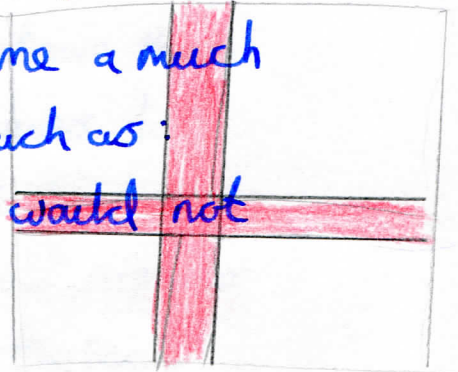 me a much
uch as:
would not